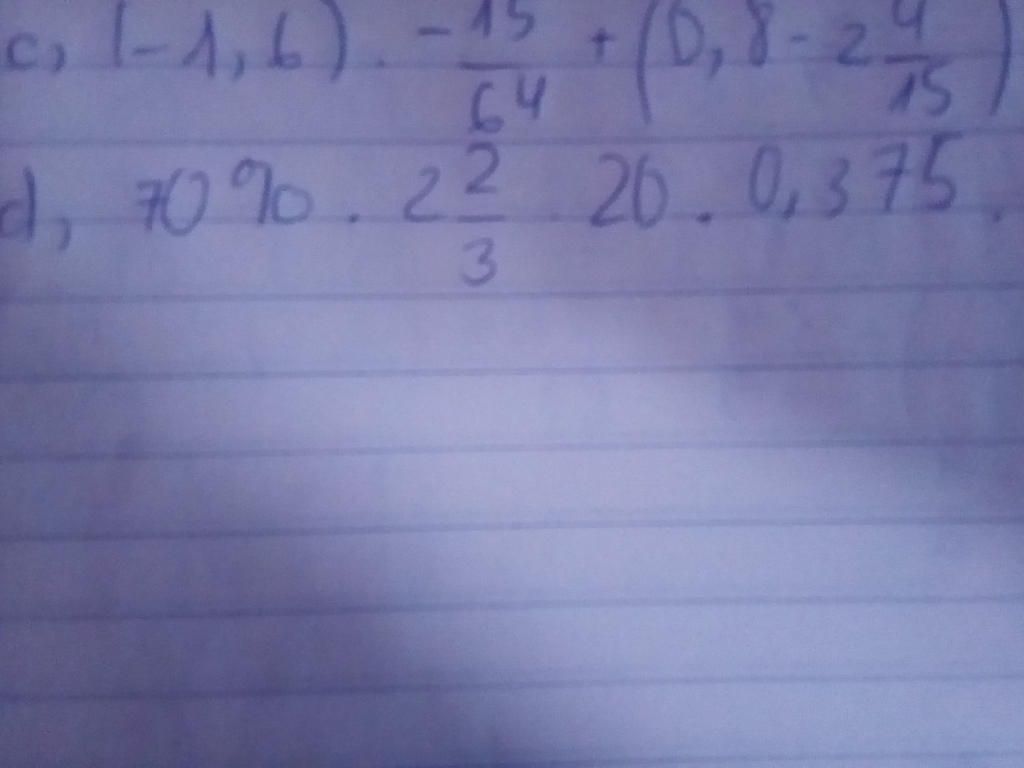 c, (-1,6) . -15/64 + (0,8 - 2 4/15)
d, 70% . 2 2/3 . 20 . 0,375 .